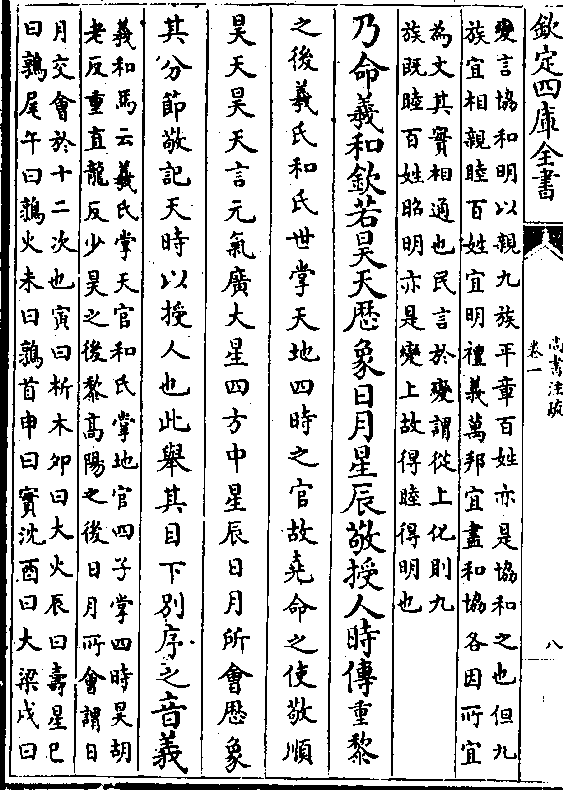 欽定四庫全書
尚書注疏
卷一
八
變言協和明以親九族平章百姓亦是協和之也但九
族宜相親睦百姓宜明禮義萬邦宜盡和協各因所宜
為文其實相通也民言於變謂從上化則九
族既睦百姓昭明亦是變上故得睦得明也
乃命羲和欽若昊天厯象日月星辰敬授人時傳重黎
之後羲氏和氏世掌天地四時之官故堯命之使敬順
昊天昊天言元氣廣大星四方中星辰日月所會厯象
其分節敬記天時以授人也此舉其目下別序之音義
羲和馬云羲氏掌天官和氏掌地官四子掌四時昊胡
老反重直龍反少昊之後黎高陽之後日月所會謂日
月交會於十二次也寅曰析木卯曰大火辰曰壽星巳
曰鶉尾午曰鶉火未曰鶉首申曰實沈酉曰大梁戌曰